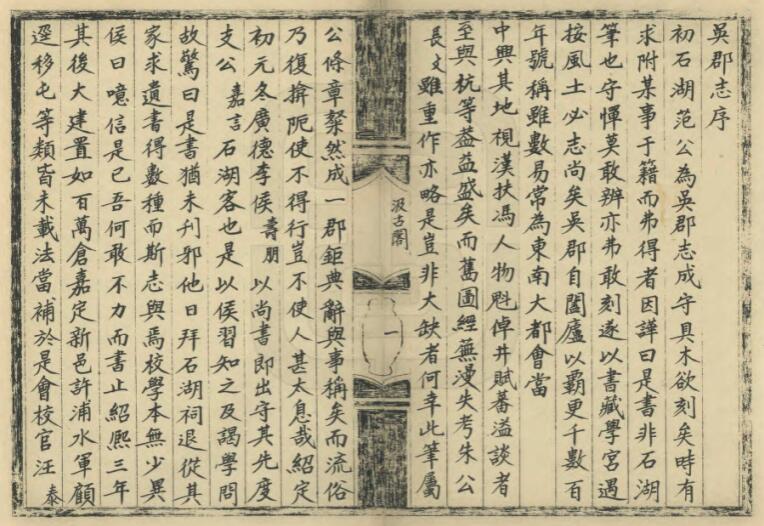 吳郡志序
初石湖范公為吳郡志成守具木欲刻矣時有
求附某事于籍而弗得者因譁曰是書非石湖
筆也守憚莫敢辨亦弗敢刻遂以書藏學宮遇
按風土必志尚矣吳郡自闔廬以霸更千數百
年號稱雖數易常為東南大都會當
中興其地視漢扶馮人物魁倬井賦蕃溢談者
至與杭等葢益盛矣而舊圖經蕪漫失考朱公
長文雖重作亦略是豈非大缺者何幸此筆屬
汲古閣
一
公條章粲然成一郡鉅典辭與事稱矣而流俗
乃復揜阨使不得行豈不使人甚太息哉紹定
初元冬廣德李侯壽朋以尚書郎出守其先度
支公嘉言石湖客也是以侯習知之及謁學問
故驚曰是書猶未刊邪他日拜石湖祠退從其
家求遺書得數種而斯志與焉校學本無少異
侯曰噫信是已吾何敢不力而書止紹熙三年
其後大建置如百萬倉嘉定新邑許浦水軍顧
逕移屯等類皆未載法當補於是會校官汪泰